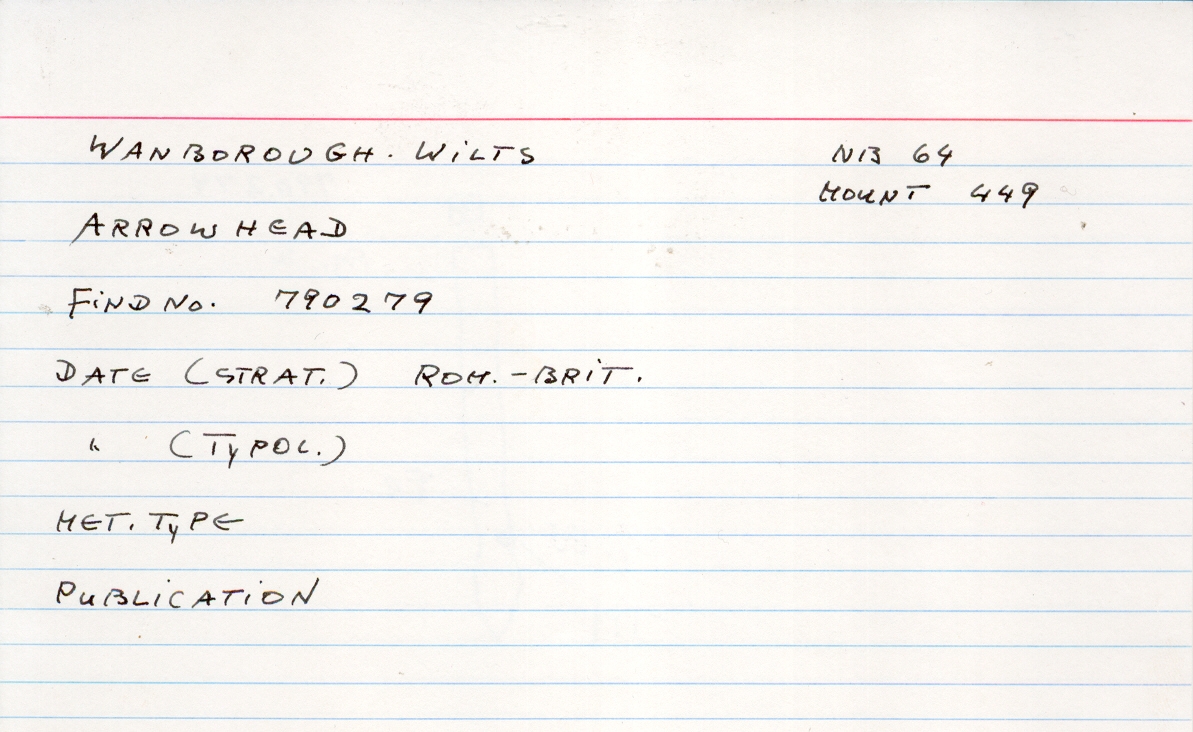 WANBOROUGH. WILTS NB 64
MOUNT 449
ARROWHEAD
FIND NO. 790279
DATE (STRAT.) ROM.-BRIT.
" (TYPOL.)
MET. TYPE
PUBLICATION